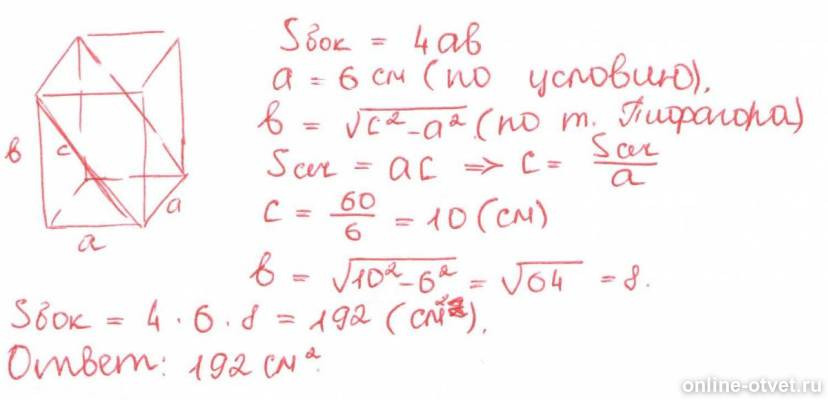 Sбок = 4ab
a = 6 см (по условию),
b = √c² - a² (по т. Пифагора)
Sсеч = ac ⇒ c = Sсеч/a
c = 60/6 = 10 (см)
b = √10² - 6² = √64 = 8.
Sбок = 4 · 6 · 8 = 192 (см²),
Ответ: 192 см².
b
c
a
a
online-otvet.ru